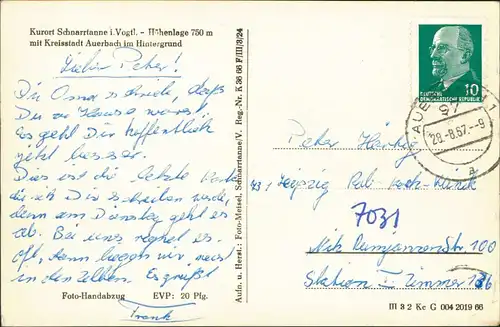 Kurort Schnarrtanne i. Vogtl. - Höhenlage 750 m
mit Kreisstadt Auerbach im Hintergrund
Lieber Peter!
Die Oma schrieb, daß
Du zu Hause warst.
Es geht Dir hoffentlich
jetzt besser.
Dies ist die letzte Karte
die ich Dir schreiben werde,
denn am Dienstag geht es
ab. Bei uns regnet es
oft, dann liegen wir meist
in den Zelten. Es grüßt
Frank
Foto-Handabzug EVP: 20 Pfg.
Aufn. u. Herst.: Foto-Meisel, Schnarrtanne/V. Reg.-Nr. K 36 66 F/III/3/24
10
DEUTSCHE
DEMOKRATISCHE REPUBLIK
AUE
28.-8.67.-9
a
Peter
Leipzig
7031
100
Station I Zimmer 136
III 3 2 Ke G 004 2019 66